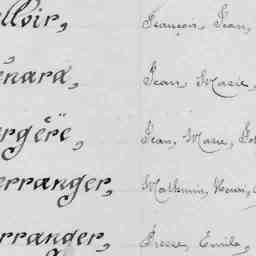 lloir, François, Jean,
énard, Jean Marie,
ergère, Jean, Marie,
erranger, Mathurin, Henri,
rranger, Presse, Emile,